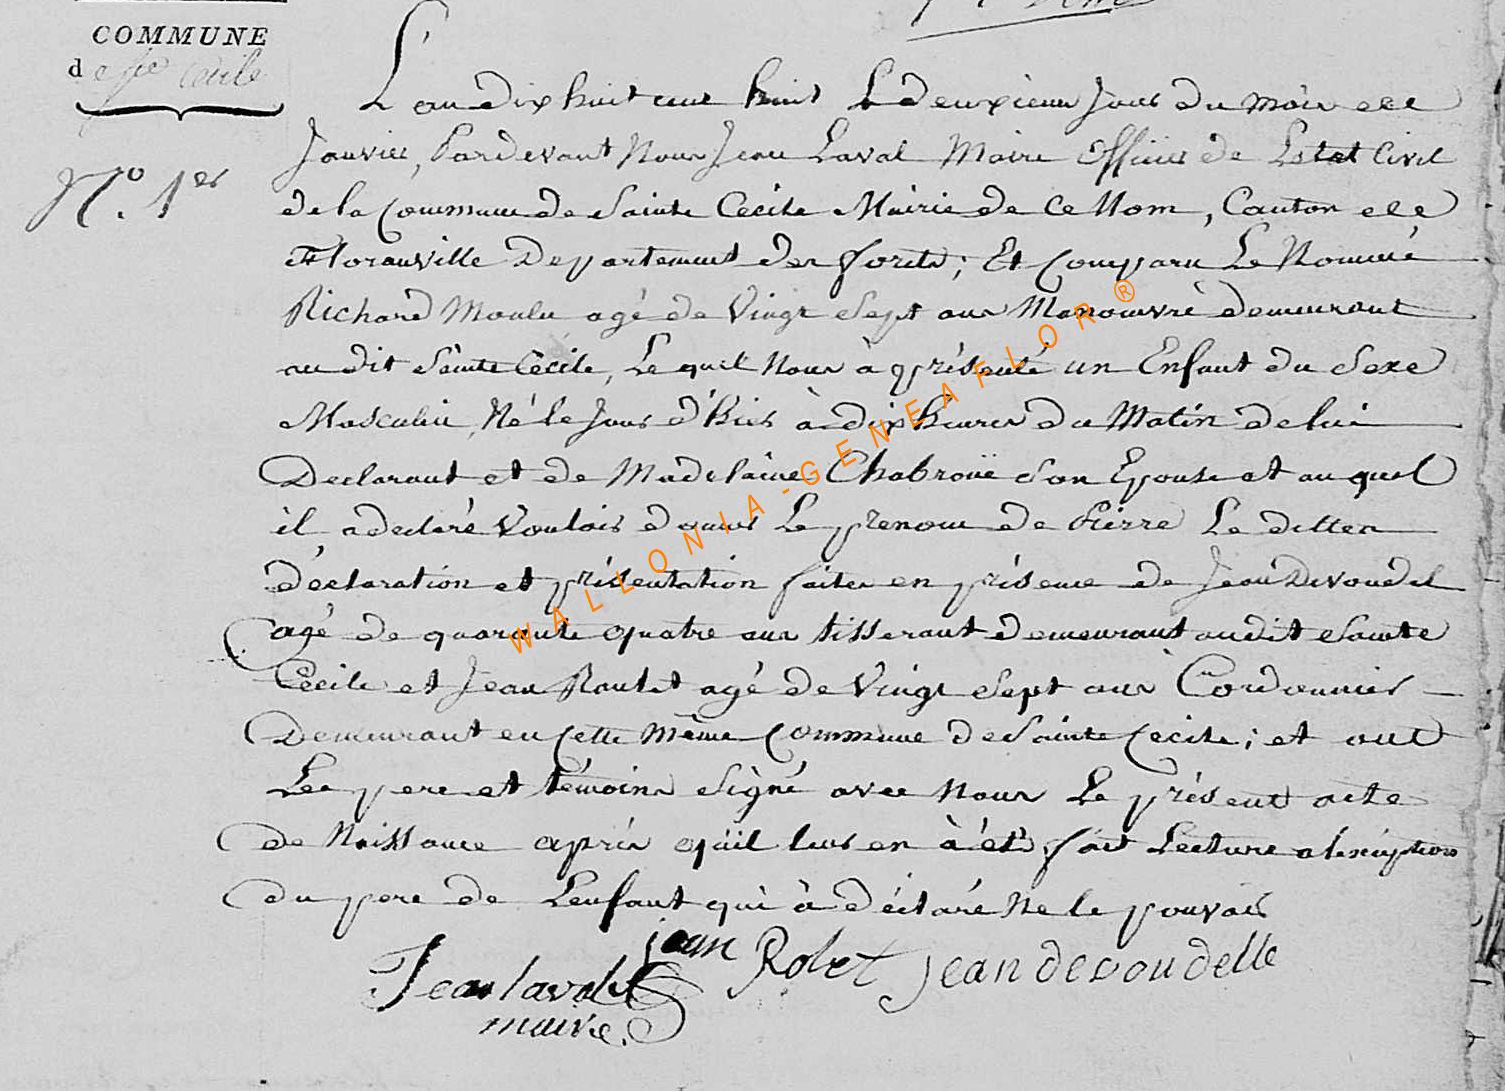 COMMUNE
de Ste Cécile
N.º 1er
L'an dix huit cent huit Le deuxieme Jour du mois de
Janvier, Pardevant Nous Jean Laval Maire Officier de Letat Civil
de la Commune de Sainte Cécile Mairie de Ce Nom, Canton de
Floranville Departement des forets; Et Comparu Le Nommé
Richard Moulu agé de Vingt Sept ans Manouvré demeurant
au dit Sainte Cécile, Le quel Nous à présenté un Enfant du Sexe
Masculin, Né le Jour d'hier à dix heures du Matin de lui
Declarant et de Madelaine Chabroüé Son Epouse et auquel
il a declaré Vouloir donner Le prenom de Pierre Le dittes
déclaration et présentation faites en présence de Jean Devoudel
agé de quarante quatre ans tisserant demeurant audit Sainte
Cécile et Jean Raulet agé de Vingt Sept ans Cordonnier
Demeurant en Cette même Commune de Sainte Cecile; et ont
Les pere et témoins Signé avec Nous Le présent acte
de Naissance après qu'il leur en à été fait Lecture a lexception
du pere de Lenfant qui à déclaré Ne le pouvoir
jean Rolet jean devoudelle
Jean laval
maire.
WALLONIA-GENEAFLOR®